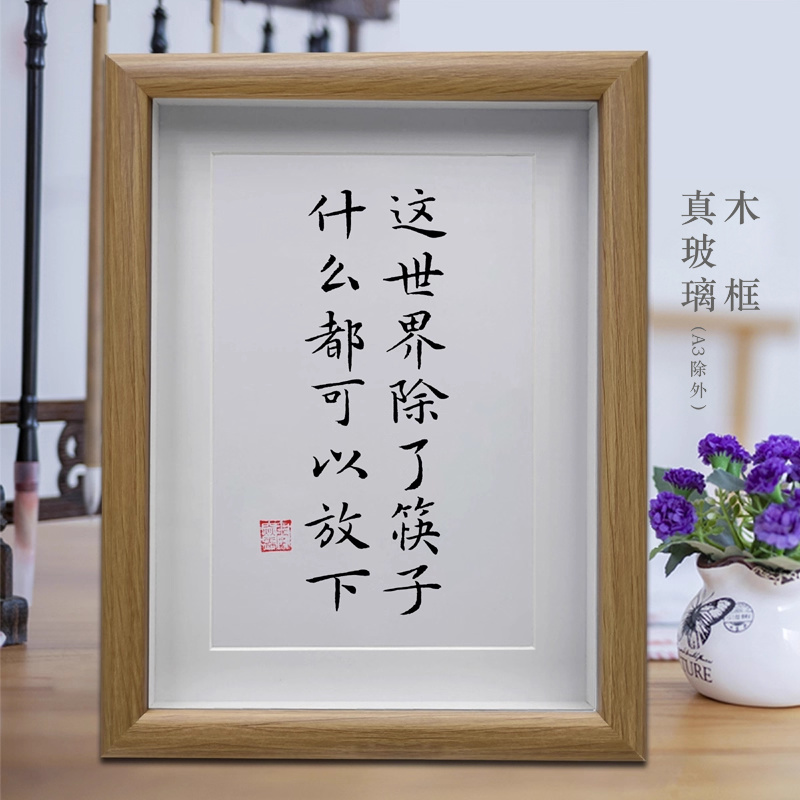 这世界除了筷子
什么都可以放下
木框
真玻璃
(A3除外)
TURE